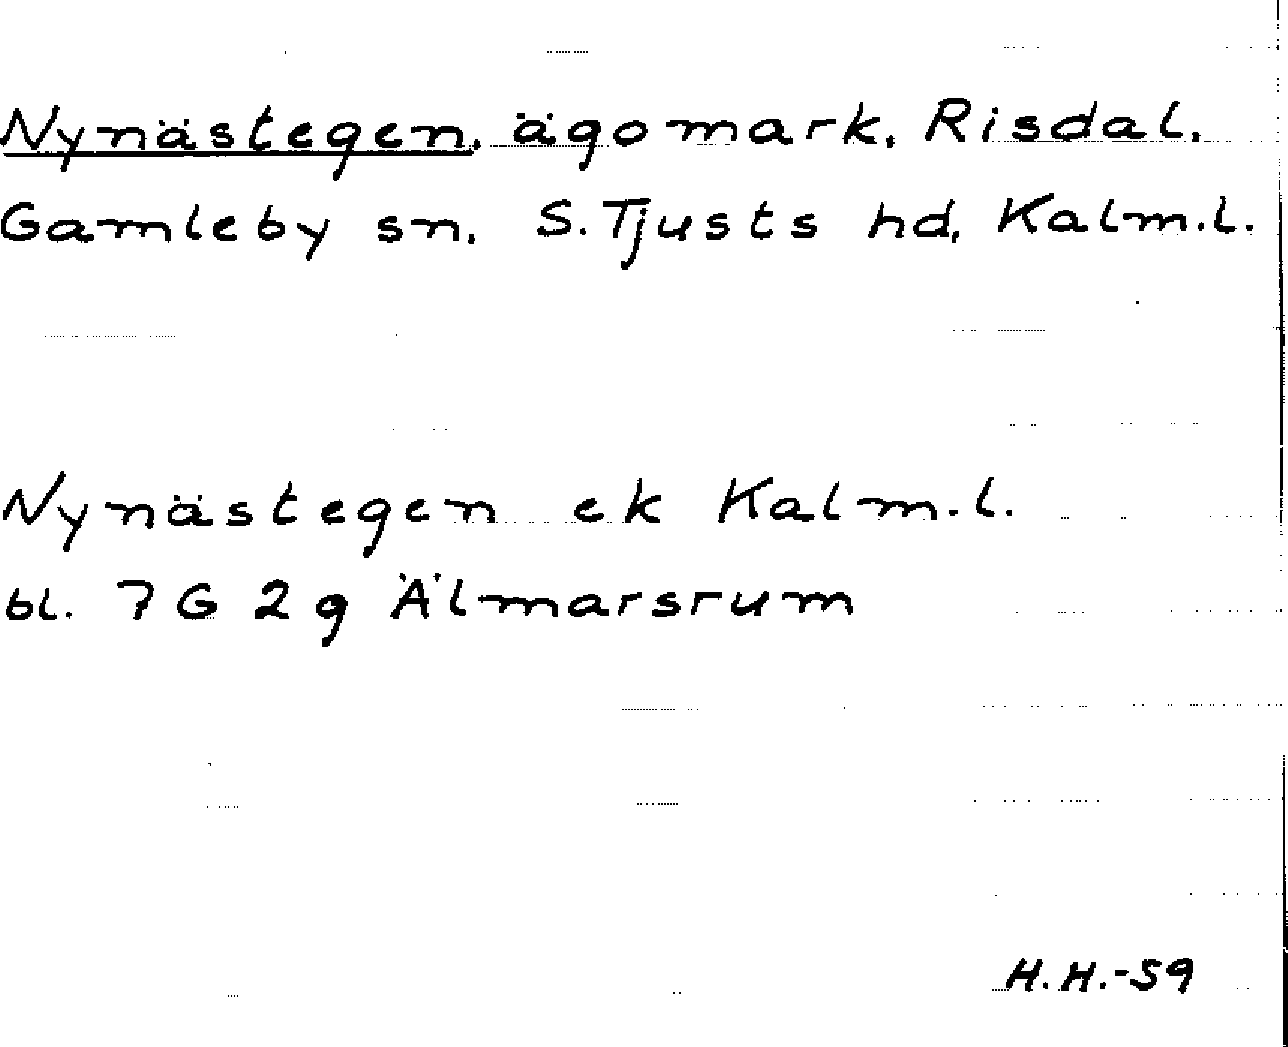 Nynästegen, ägomark, Risdal,
Gamleby sn, S. Tjusts hd, Kalm.l.
Nynästegen ek Kalm.l.
bl. 7 G 2 g Älmarsrum
H.H.-59